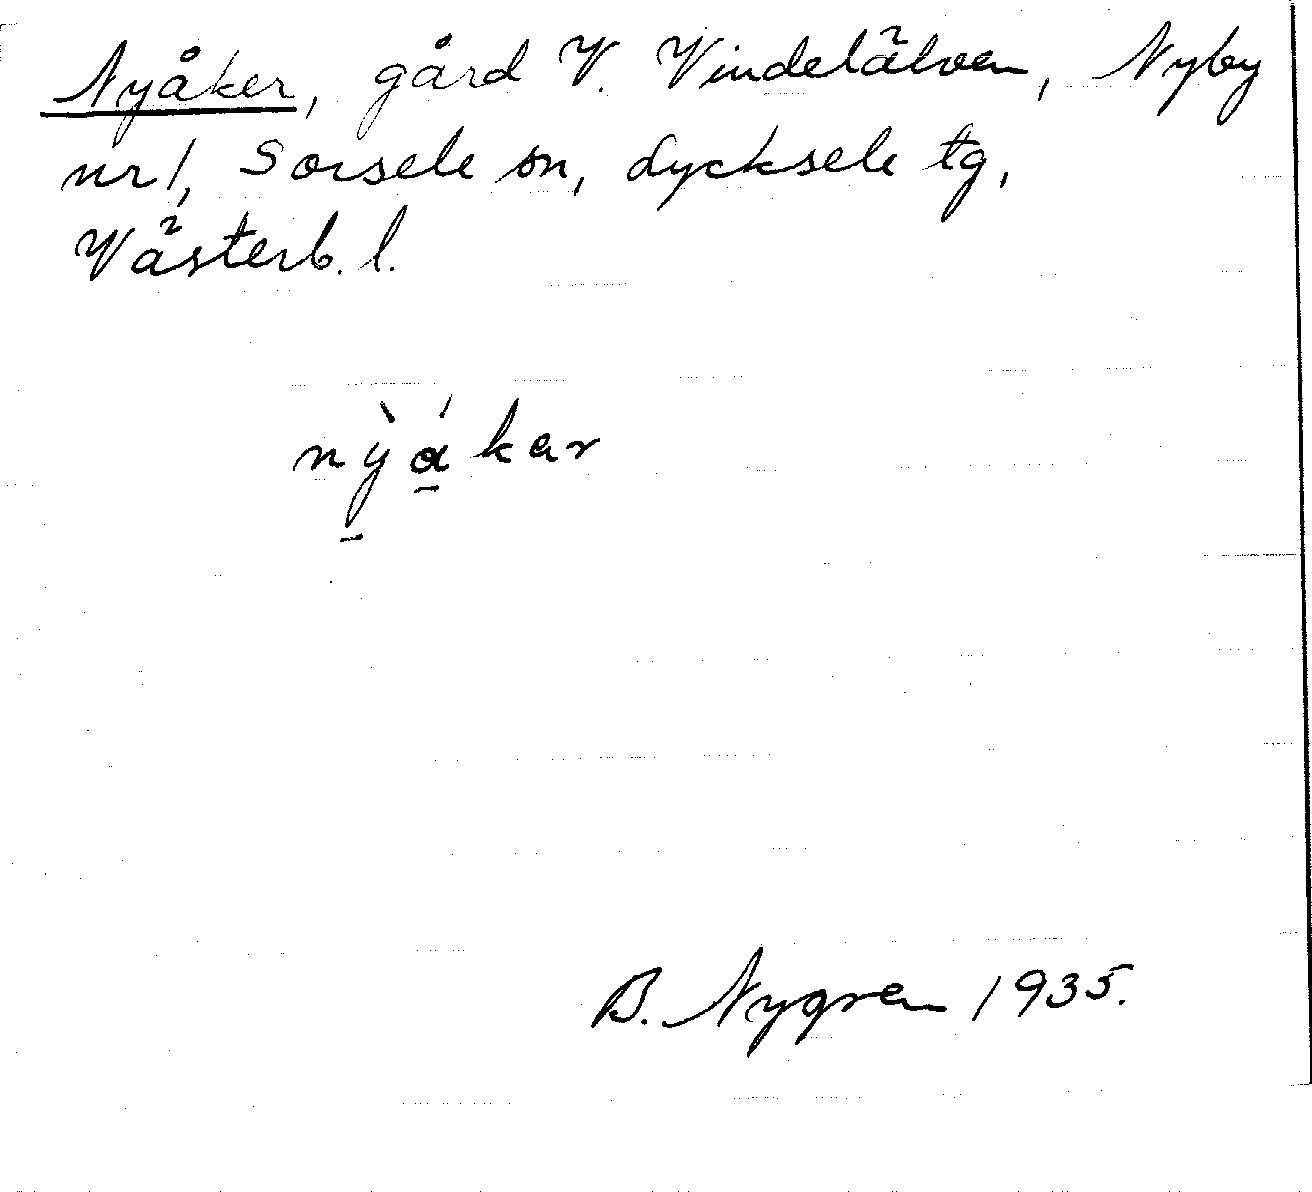 Nyåker, gård V. Vindelälven, Nyby
nr 1, Sorsele sn, Lycksele tg,
Västerb. l.
nỳ̱á̱kar
B. Nygren 1935.